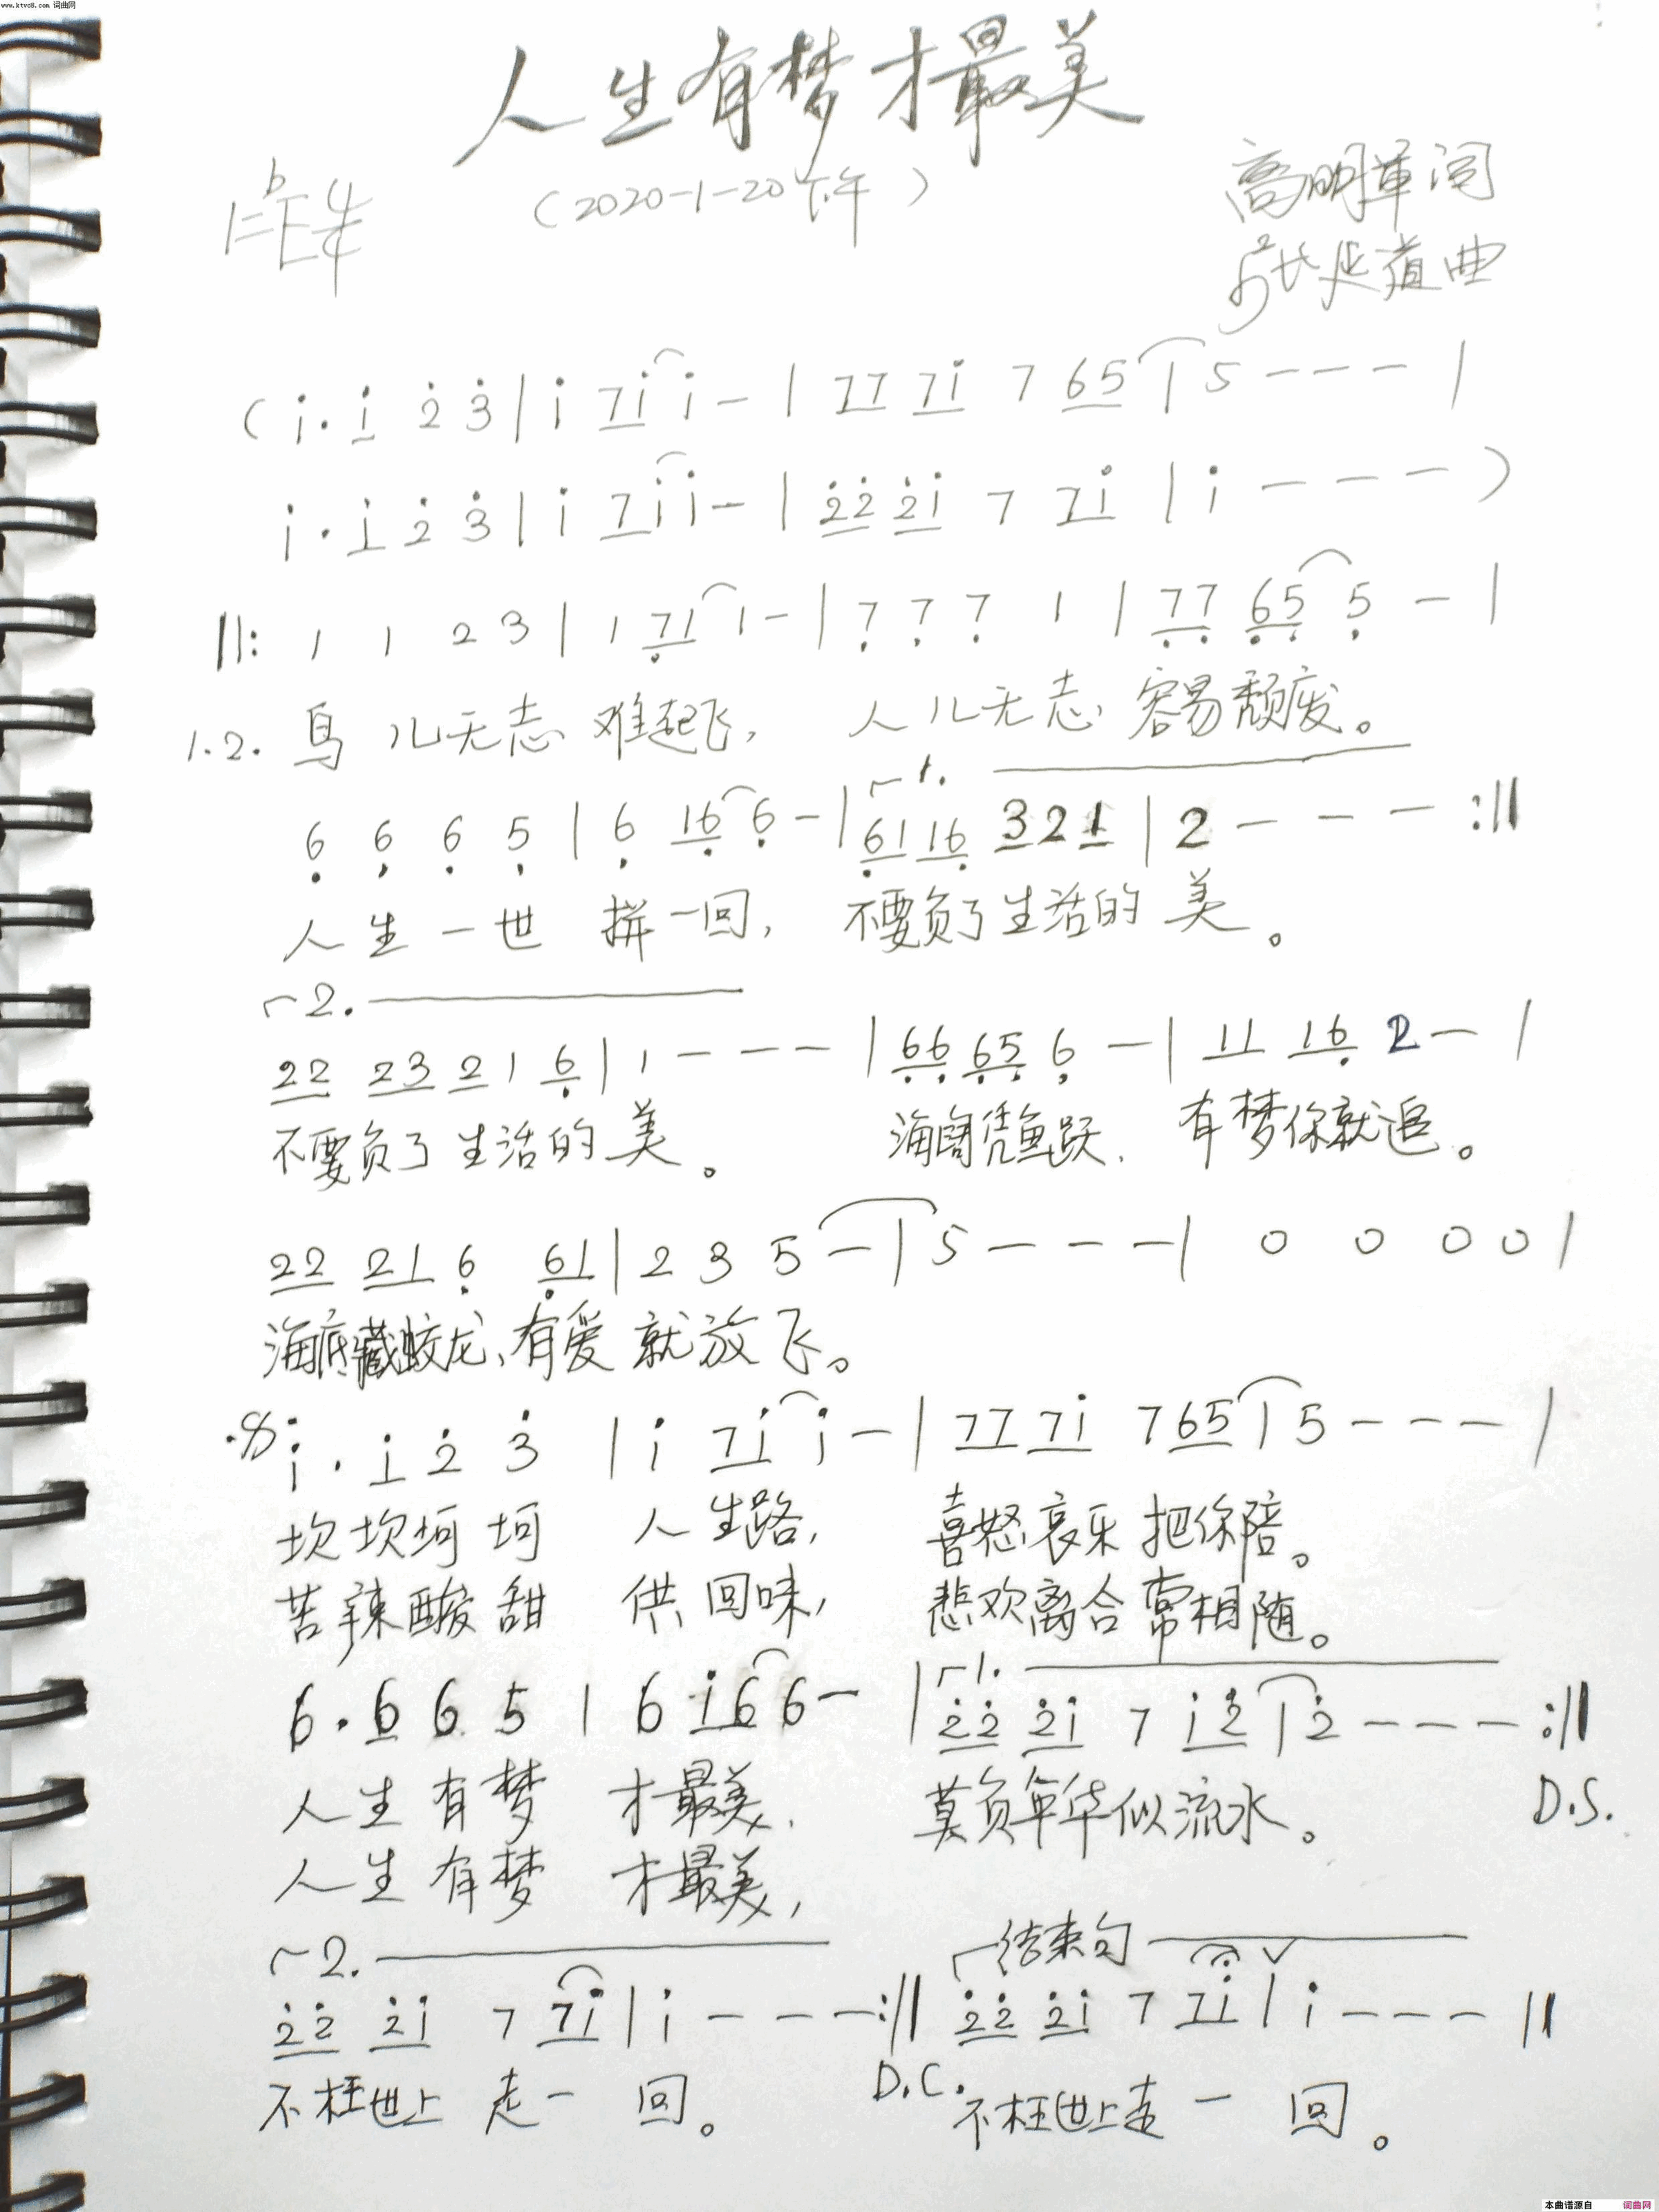 www.ktvc8.com 词曲网
人生有梦才最美
(2020-1-20下午)
1=ᵇE 4/4
高明军词
延道曲
(i. i 2̇ 3̇ | i 7i i - | 77 7i 7 65 | 5 - - - |
i. i 2̇ 3̇ | i 7i i - | 2̇2̇ 2̇i 7 7i | i - - - )
||: 1 1 2 3 | 1 7̣1 1 - | 7̣ 7̣ 7̣ 1 | 7̣7̣ 6̣5̣ 5̣ - |
1.2. 鸟儿无志难起飞, 人儿无志容易颓废。
1.
6̣ 6̣ 6̣ 5̣ | 6̣ 16̣ 6̣ - | 6̣1 16̣ 3 2 1 | 2 - - - :||
人生一世 拼一回, 不要负了生活的美。
2.
22 23 2 1 6̣ | 1 - - - | 6̣6̣ 6̣5̣ 6̣ - | 11 16̣ 2 - |
不要负了生活的美。 海阔凭鱼跃、有梦你就追。
22 21 6̣ 6̣1 | 2 3 5 - | 5 - - - | 0 0 0 0 |
海底藏蛟龙、有爱就放飞。
𝄋 i. i 2̇ 3̇ | i 7i i - | 77 7i 7 65 | 5 - - - |
坎坎坷坷 人生路, 喜怒哀乐把你陪。
苦辣酸甜 供回味, 悲欢离合常相随。
1.
6. 6 6 5 | 6 i6 6 - | 2̇2̇ 2̇i 7 i2̇ | 2̇ - - - :||
人生有梦 才最美、 莫负年华似流水。 D.S.
人生有梦 才最美,
2. 结束句
2̇2̇ 2̇i 7 7i | i - - - :|| 2̇2̇ 2̇i 7 7i | i - - - ||
不枉世上走一回。 D.C. 不枉世上走一回。
本曲谱源自 词曲网